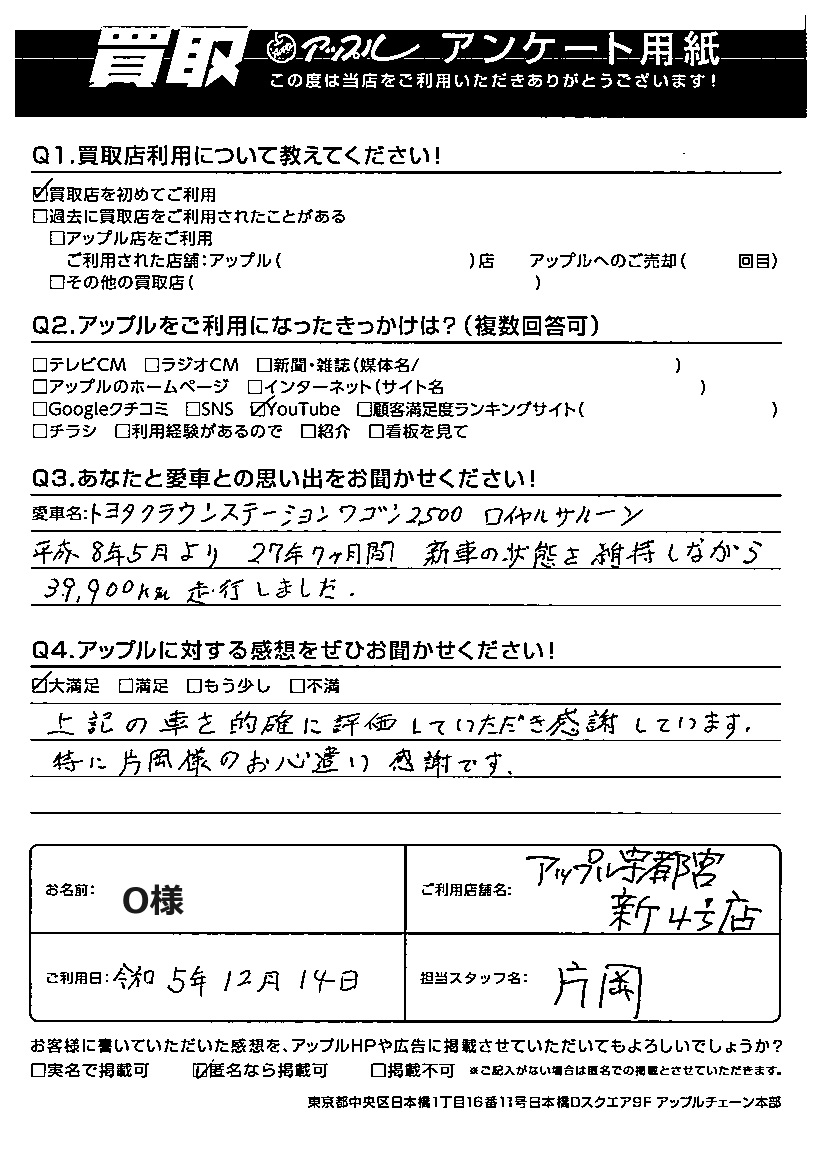 買取 アップル アンケート用紙
この度は当店をご利用いただきありがとうございます!
Q1.買取店利用について教えてください!
☑買取店を初めてご利用
□過去に買取店をご利用されたことがある
□アップル店をご利用
ご利用された店舗:アップル( )店 アップルへのご売却( 回目)
□その他の買取店( )
Q2.アップルをご利用になったきっかけは?(複数回答可)
□テレビCM □ラジオCM □新聞・雑誌(媒体名/ )
□アップルのホームページ □インターネット(サイト名 )
□Googleクチコミ □SNS ☑YouTube □顧客満足度ランキングサイト( )
□チラシ □利用経験があるので □紹介 □看板を見て
Q3.あなたと愛車との思い出をお聞かせください!
愛車名:トヨタクラウンステーションワゴン2500 ロイヤルサルーン
平成8年5月より 27年7ヶ月間 新車の状態を維持しながら
39,900km走行しました.
Q4.アップルに対する感想をぜひお聞かせください!
☑大満足 □満足 □もう少し □不満
上記の車を的確に評価していただき感謝しています.
特に片岡様のお心遣い感謝です.
お名前: O様 ご利用店舗名: アップル宇都宮
新4号店
ご利用日:令和5年12月14日 担当スタッフ名: 片岡
お客様に書いていただいた感想を、アップルHPや広告に掲載させていただいてもよろしいでしょうか?
□実名で掲載可 ☑匿名なら掲載可 □掲載不可 ※ご記入がない場合は匿名での掲載とさせていただきます。
東京都中央区日本橋1丁目16番11号日本橋Dスクエア9F アップルチェーン本部